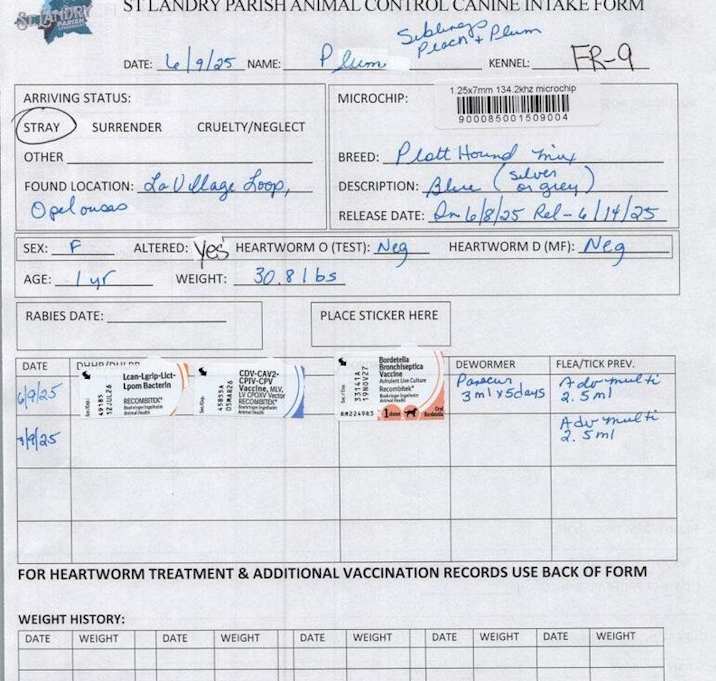 ST. LANDRY PARISH
ST LANDRY PARISH ANIMAL CONTROL CANINE INTAKE FORM
Siblings
Peach + Plum
DATE: 6/9/25 NAME: Plum KENNEL: FR-9
ARRIVING STATUS:
STRAY SURRENDER CRUELTY/NEGLECT
OTHER
FOUND LOCATION: La Village Loop,
Opelousas
MICROCHIP:
1.25x7mm 134.2khz microchip
900085001509004
BREED: Plott Hound mix
DESCRIPTION: Blue (silver or grey)
RELEASE DATE: In 6/8/25 Rel- 6/14/25
SEX: F ALTERED: Yes HEARTWORM O (TEST): Neg HEARTWORM D (MF): Neg
AGE: 1 yr WEIGHT: 30.8 lbs
RABIES DATE:
PLACE STICKER HERE
DATE DEWORMER FLEA/TICK PREV.
6/9/25
Lcan-Lgrip-Lict-
Lpom Bacterin
RECOMBITEK®
Boehringer Ingelheim
Animal Health
12JUL26
CDV-CAV2-
CPIV-CPV
Vaccine, MLV,
LV CPOXV Vector
RECOMBITEK®
Boehringer Ingelheim
Animal Health
05MAR26
Bordetella
Bronchiseptica
Vaccine
Avirulent Live Culture
Recombitek®
Boehringer Ingelheim
Animal Health
331414
19NOV27
RM224983
1 dose
Oral
Bordetella
Panacur
3 ml x 5 days
Advmulti
2.5 ml
/9/25
Advmulti
2.5 ml
FOR HEARTWORM TREATMENT & ADDITIONAL VACCINATION RECORDS USE BACK OF FORM
WEIGHT HISTORY:
DATE WEIGHT DATE WEIGHT DATE WEIGHT DATE WEIGHT DATE WEIGHT